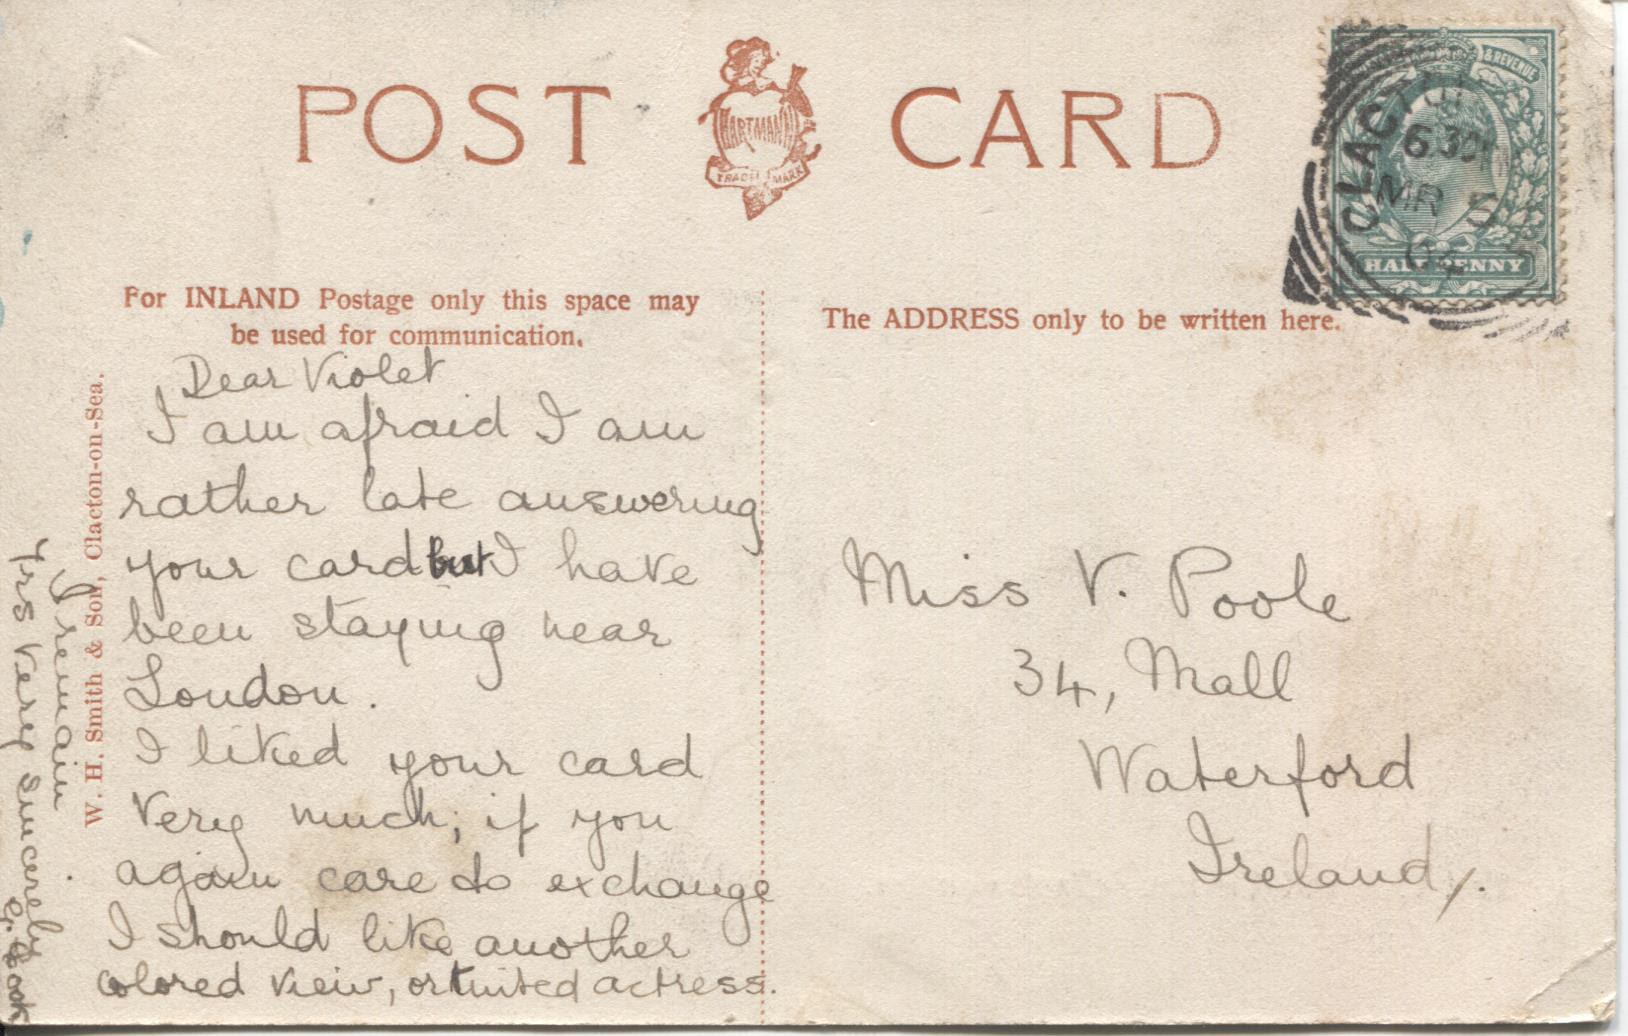 POST CARD
HARTMANN
TRADE MARK
& REVENUE
CLACTON
6 30 PM
MR 5
04
HALFPENNY
For INLAND Postage only this space may
be used for communication.
The ADDRESS only to be written here.
W. H. Smith & Son, Clacton-on-Sea.
Dear Violet
I am afraid I am
rather late answering
your card but I have
been staying near
London.
I liked your card
very much; if you
again care to exchange
I should like another
colored view, or tinted actress.
I remain
Yrs very sincerely
Miss V. Poole
34, Mall
Waterford
Ireland/.